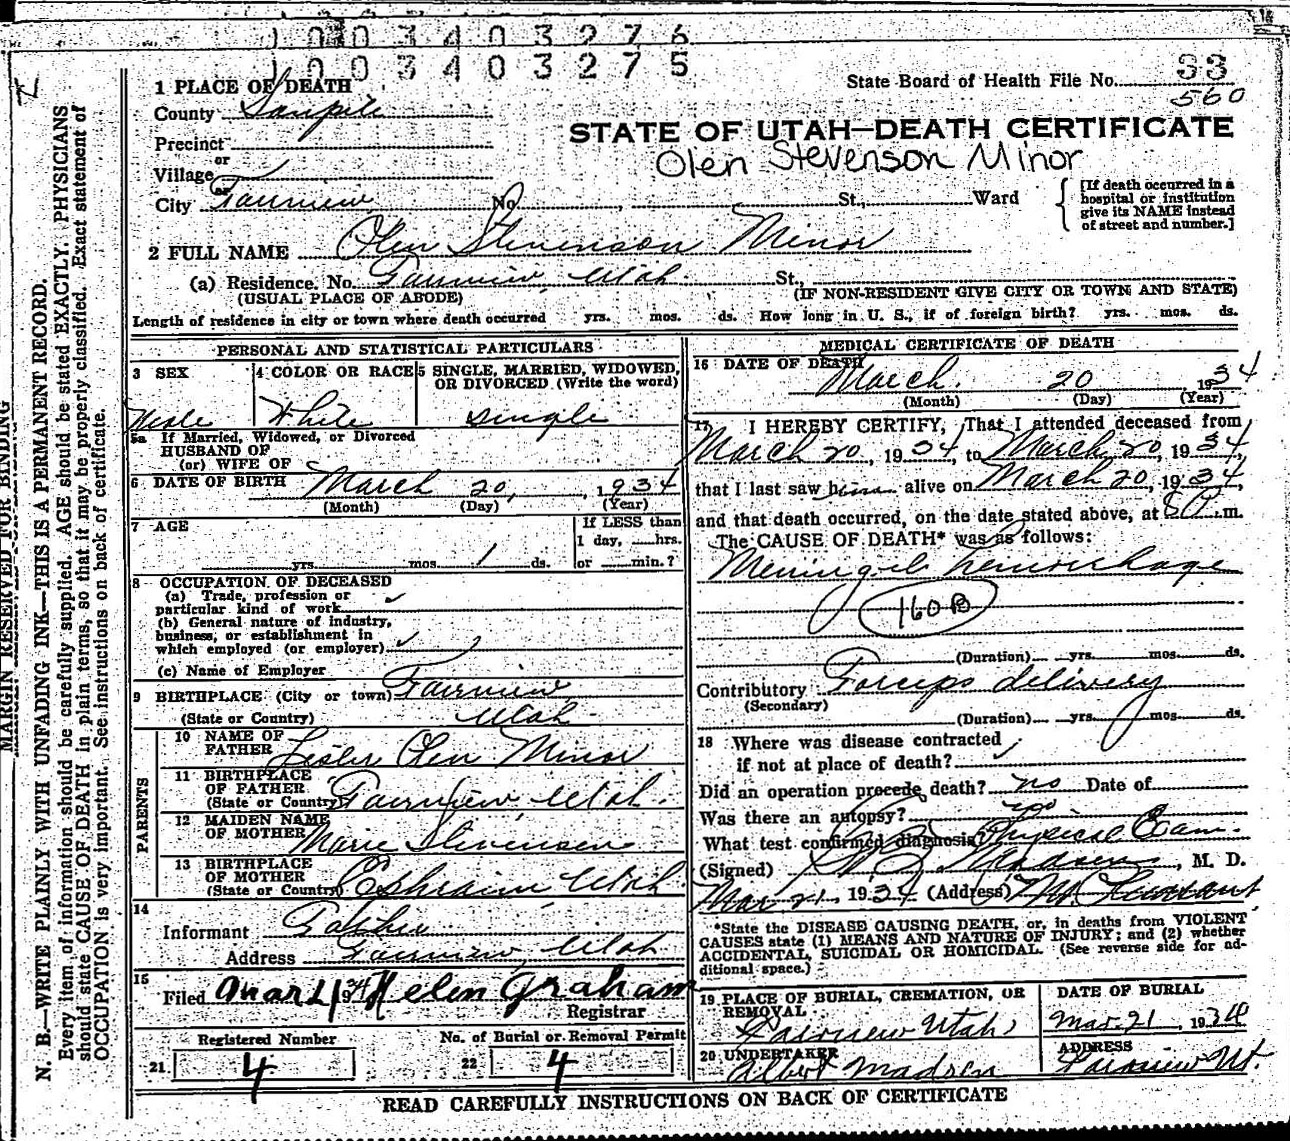 1 0 0 3 4 0 3 2 7 6
1 0 0 3 4 0 3 2 7 5
State Board of Health File No. 33
560
1 PLACE OF DEATH
County Sanpete
Precinct
or
Village
or
City Fairview No. , St., Ward
STATE OF UTAH—DEATH CERTIFICATE
Olen Stevenson Minor
[If death occurred in a
hospital or institution
give its NAME instead
of street and number.]
2 FULL NAME Olen Stevenson Minor
(a) Residence. No. Fairview, Utah St.,
(USUAL PLACE OF ABODE) (IF NON-RESIDENT GIVE CITY OR TOWN AND STATE)
Length of residence in city or town where death occurred yrs. mos. ds. How long in U. S., if of foreign birth? yrs. mos. ds.
PERSONAL AND STATISTICAL PARTICULARS
3 SEX
Male
4 COLOR OR RACE
White
5 SINGLE, MARRIED, WIDOWED,
OR DIVORCED (Write the word)
Single
5a If Married, Widowed, or Divorced
HUSBAND OF
(or) WIFE OF
6 DATE OF BIRTH March 20, 1934
(Month) (Day) (Year)
7 AGE
yrs. mos. 1 ds.
If LESS than
1 day, hrs.
or min.?
8 OCCUPATION OF DECEASED
(a) Trade, profession or
particular kind of work
(b) General nature of industry,
business, or establishment in
which employed (or employer)
(c) Name of Employer
9 BIRTHPLACE (City or town) Fairview
(State or Country) Utah
PARENTS
10 NAME OF
FATHER Lester Olen Minor
11 BIRTHPLACE
OF FATHER
(State or Country) Fairview, Utah.
12 MAIDEN NAME
OF MOTHER Marie Stevenson
13 BIRTHPLACE
OF MOTHER
(State or Country) Ephraim Utah
14
Informant Father
Address Fairview, Utah
15
Filed Mar 21 1934 Helen Graham
Registrar
Registered Number
21 4
No. of Burial or Removal Permit
22 4
MEDICAL CERTIFICATE OF DEATH
16 DATE OF DEATH
March 20 1934
(Month) (Day) (Year)
17 I HEREBY CERTIFY, That I attended deceased from
March 20, 1934, to March 20, 1934,
that I last saw him alive on March 20, 1934,
and that death occurred, on the date stated above, at m.
The CAUSE OF DEATH* was as follows:
Meningeal hemorrhage
160 B
(Duration) yrs. mos. ds.
Contributory Forceps delivery
(Secondary)
(Duration) yrs. mos. ds.
18 Where was disease contracted
if not at place of death?
Did an operation precede death? no Date of
Was there an autopsy? no
What test confirmed diagnosis Physical Exam.
(Signed) Madsen, M. D.
Mar 21, 1934 (Address) Mt Pleasant
*State the DISEASE CAUSING DEATH, or, in deaths from VIOLENT
CAUSES state (1) MEANS AND NATURE OF INJURY; and (2) whether
ACCIDENTAL, SUICIDAL OR HOMICIDAL. (See reverse side for ad-
ditional space.)
19 PLACE OF BURIAL, CREMATION, OR
REMOVAL
Fairview Utah
DATE OF BURIAL
Mar. 21, 1934
20 UNDERTAKER
Albert Madsen
ADDRESS
Fairview Ut.
READ CAREFULLY INSTRUCTIONS ON BACK OF CERTIFICATE
MARGIN RESERVED FOR BINDING
N. B.—WRITE PLAINLY WITH UNFADING INK—THIS IS A PERMANENT RECORD.
Every item of information should be carefully supplied. AGE should be stated EXACTLY. PHYSICIANS
should state CAUSE OF DEATH in plain terms, so that it may be properly classified. Exact statement of
OCCUPATION is very important. See instructions on back of certificate.